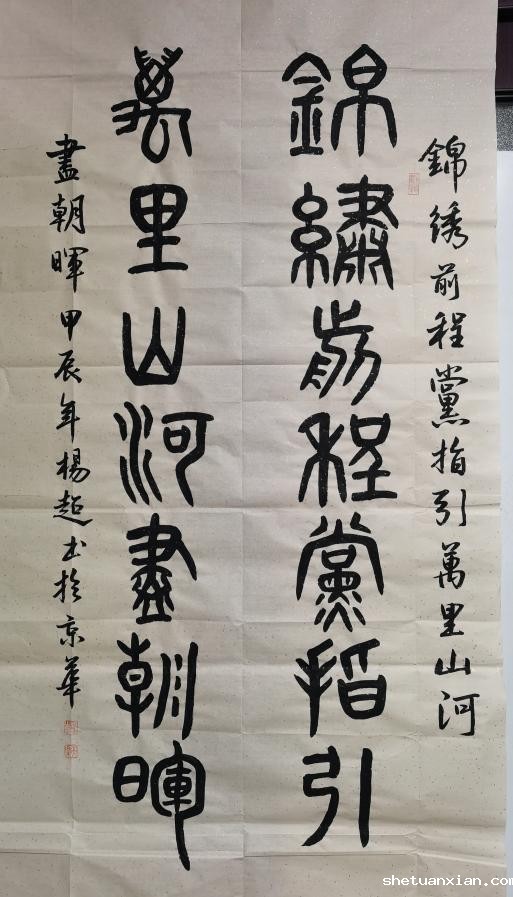 錦綉前程黨指引萬里山河
錦繡前程黨指引
萬里山河盡朝暉
盡朝暉甲辰年楊超书於京華
shetuanxian.com